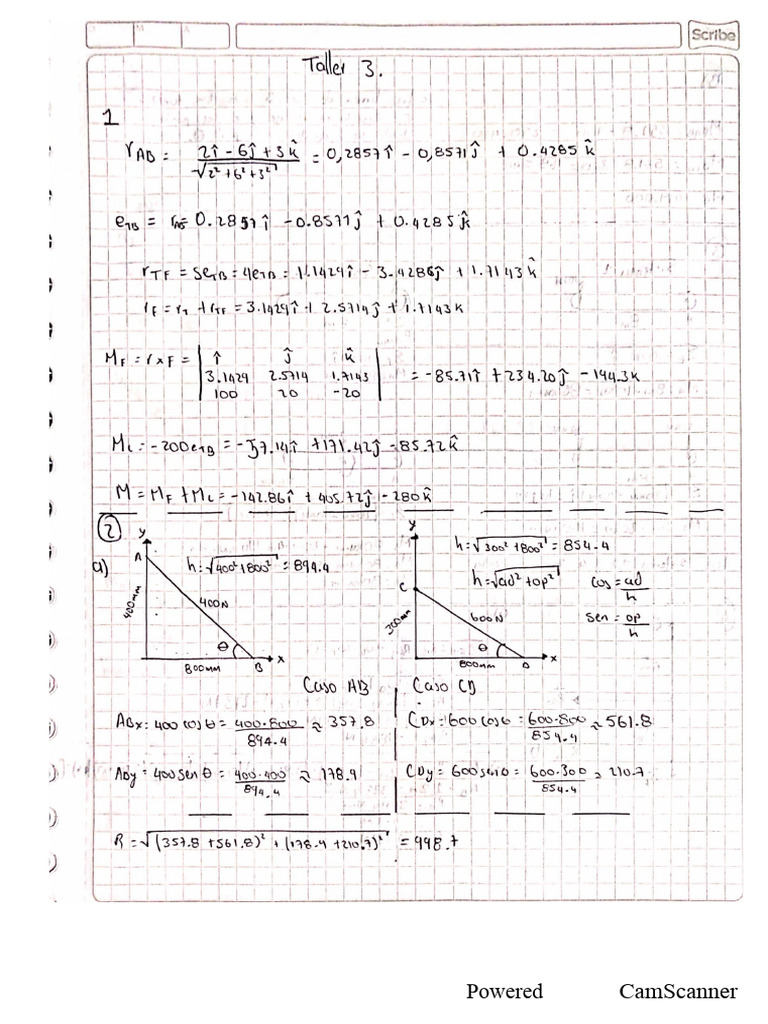 Scribe
Taller 3.
1
r_AB = (2î - 6ĵ + 3k̂) / √(2² + 6² + 3²) = 0,2857î - 0,8571ĵ + 0.4285k̂
e_TB = r_AB = 0.2857î - 0.8571ĵ + 0.4285k̂
r_TF = Se_TB = 4e_TB = 1.1429î - 3.4286ĵ + 1.7143k̂
r_F = r_T + r_TF = 3.1429î + 2.5714ĵ + 1.7143k
M_F = r x F = | î ĵ k̂ |
| 3.1429 2.5714 1.7143 | = -85.71î + 234.20ĵ - 194.3k
| 100 20 -20 |
M_L = -200e_TB = -57.14î + 171.42ĵ - 85.72k̂
M = M_F + M_L = -142.86î + 405.72ĵ - 280k̂
2
a)
y
A
h = √(400² + 800²) = 894.4
400mm
400N
θ
800mm
B
x
y
h = √(300² + 800²) = 854.4
h = √(ad² + op²)
Cos = ad/h
Sen = op/h
C
300mm
600N
θ
800mm
D
x
Caso AB
Caso CD
ABx = 400 cos θ = (400·800)/894.4 ≈ 357.8
CDx = 600 cos θ = (600·800)/854.4 ≈ 561.8
ABy = 400 sen θ = (400·400)/894.4 ≈ 178.9
CDy = 600 sen θ = (600·300)/854.4 ≈ 210.7
R = √((357.8 + 561.8)² + (178.9 + 210.7)²) = 998.7
Powered CamScanner